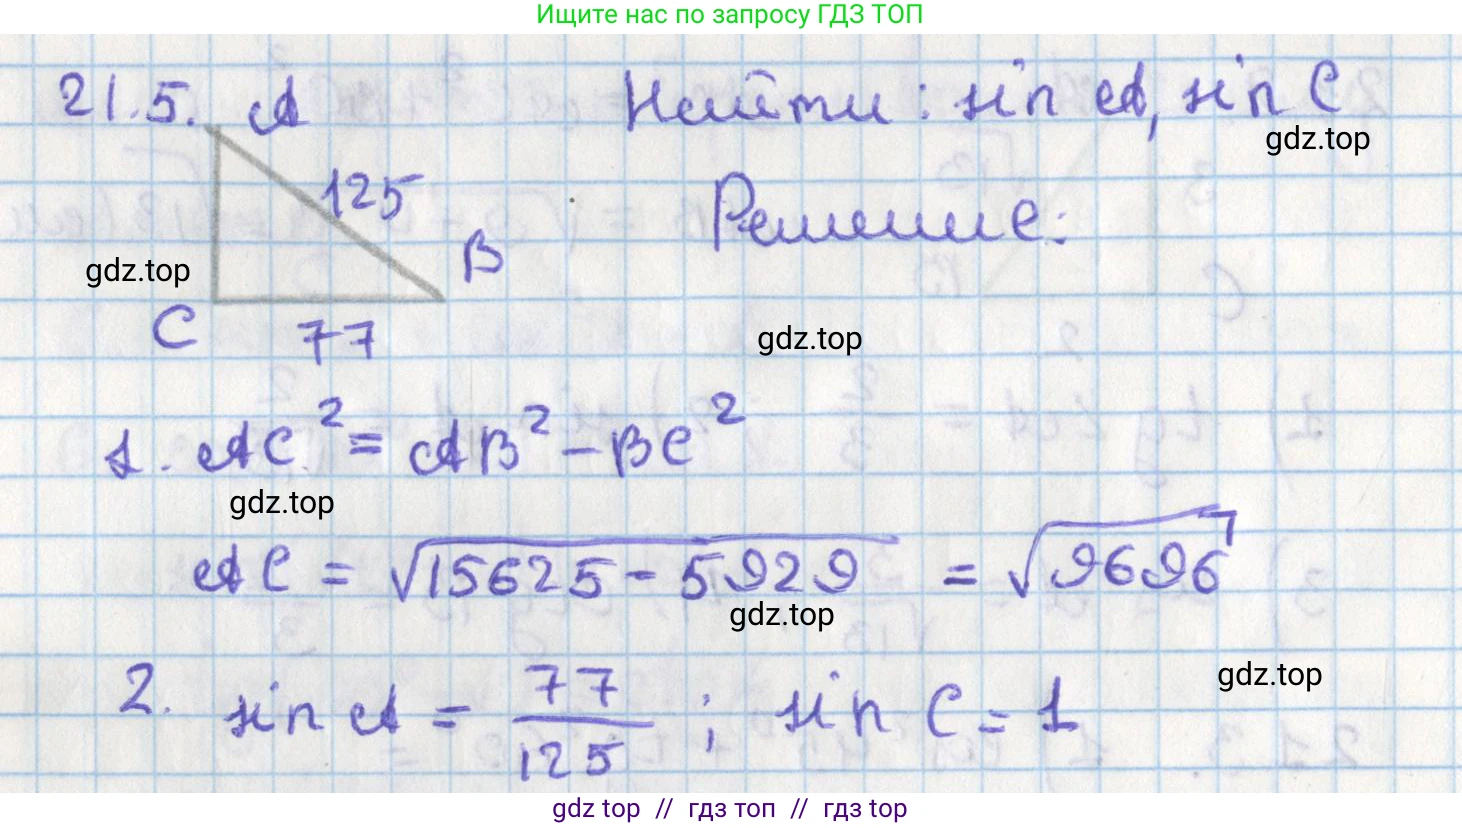 Ищите нас по запросу ГДЗ ТОП
21.5. A Найти: sin A, sin C
gdz.top
125
Решение:
B
gdz.top
C
77
gdz.top
1. AC² = AB² - BC²
gdz.top
AC = √15625 - 5929 = √9696
gdz.top
gdz.top
2. sin A = 77/125 ; sin C = 1
gdz top // гдз топ // гдз top